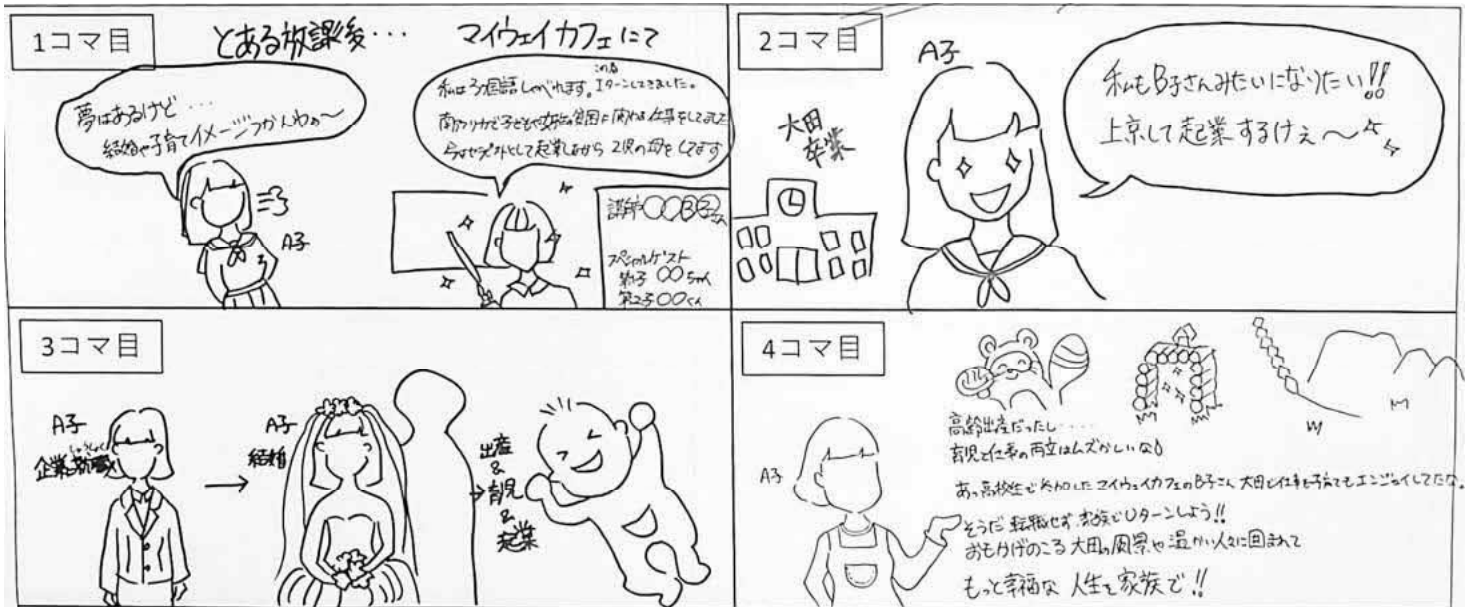 1コマ目
とある放課後・・・ マイウェイカフェにて
夢はあるけど・・・
結婚や子育てイメージつかんわぁ〜
A子
この春
私は3か国語しゃべれます。Iターンしてきました。
南アフリカで子どもや女性の貧困に関わる仕事をしてました
今はセラピストとして起業しながら2児の母をしてます
講師〇〇B子さん
スペシャルゲスト
第1子 〇〇ちゃん
第2子〇〇くん
2コマ目
A子
大田
卒業
私もB子さんみたいになりたい!!
上京して起業するけぇ〜
3コマ目
A子
しゅうしょく
企業就職
A子
結婚
出産
&
育児
&
起業
4コマ目
A子
高齢出産だったし・・・・
育児と仕事の両立はムズかしいな
あっ高校生で参加したマイウェイカフェのB子さん 大田で仕事も子育てもエンジョイしてたな。
そうだ 転職せず家族でUターンしよう!!
おもかげのこる 大田の風景や温かい人々に囲まれて
もっと幸福な 人生を家族で!!